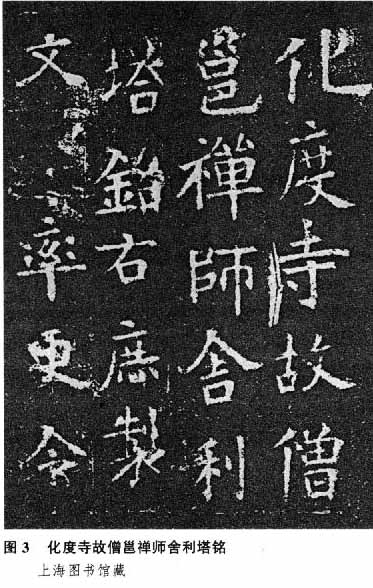 化度寺故僧
邕禪師舍利
塔銘右庶製
文率更令
图 3 化度寺故僧邕禅师舍利塔铭
上海图书馆藏